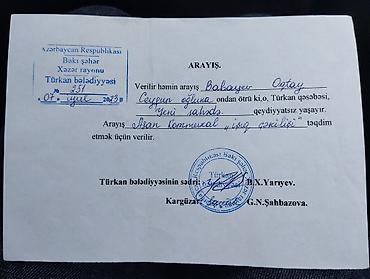 Azərbaycan Respublikası
Bakı şəhər
Xəzər rayonu
Türkan bələdiyyəsi
№ 251
"07" iyul 2023
ARAYIŞ.
Verilir həmin arayış Babayev Oqtay
Ceyqun oğluna ondan ötrü ki,o, Türkan qəsəbəsi,
Yeni sahədə qeydiyyatsız yaşayır.
Arayış Azan Kommunal „işıq çəkilişi" təqdim
etmək üçün verilir.
Türkan bələdiyyəsinin sədri: B.X.Yarıyev.
Kargüzar: G.N.Şahbazova.